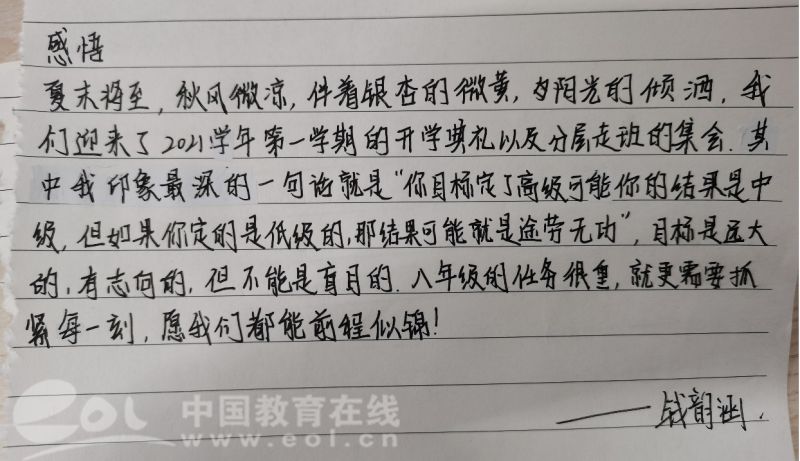 感悟
夏末将至，秋风微凉，伴着银杏的微黄，与阳光的倾洒，我
们迎来了2021学年第一学期的开学典礼以及分层走班的集会．其
中我印象最深的一句话就是“你目标定了高级可能你的结果是中
级，但如果你定的是低级的，那结果可能就是途劳无功”，目标是远大
的，有志向的，但不能是盲目的．八年级的任务很重，就更需要抓
紧每一刻，愿我们都能前程似锦！
——钱韵涵．
eol 中国教育在线
www.eol.cn